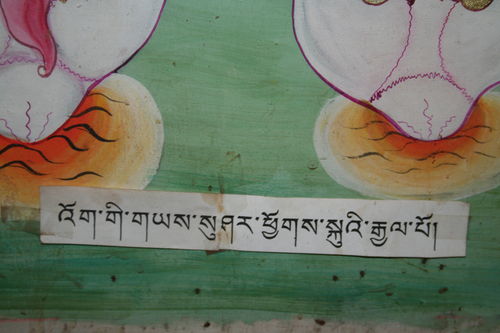 འོག་གི་གཡས་སུ་ཤར་ཕྱོགས་སྐུའི་རྒྱལ་པོ།